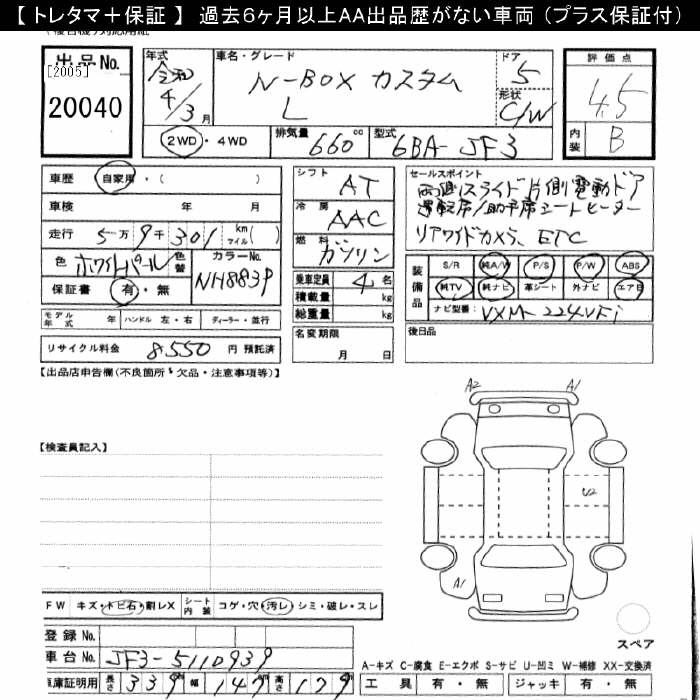 【トレタマ＋保証】 過去6ヶ月以上AA出品歴がない車両 (プラス保証付)
出品No.
[2005]
20040
年式
令和
4/3月
車名・グレード
N-BOX カスタム
L
ドア
5
形状
C/W
評価点
4.5
内装 B
2WD・4WD
排気量 660cc
型式 6BA-JF3
車歴 自家用・( )
車検 年 月
走行 5万9千301 kmマイル( )
色 ホワイトパール
色替
カラーNo. NH883P
保証書 有・無
モデル年式 年 ハンドル 左・右 ディーラー・並行
リサイクル料金 8,550 円 預託済
シフト AT
冷房 AAC
燃料 ガソリン
乗車定員 4 名
積載量 kg
総重量 kg
名変期限
月 日
セールスポイント
両側スライド片側電動ドア
運転席/助手席シートヒーター
リアワイドカメラ、ETC
装備品
S/R 純A/W P/S P/W ABS
純TV 純ナビ 革シート 外ナビ エアB
ナビ型番 VXM-224VFi
後日品
【出品店申告欄(不良箇所・欠品・注意事項等)】
【検査員記入】
A2 A1
U2
A1
スペア
FW キズ・トビ石・割レX シート内装 コゲ・穴・汚レ・シミ・破レ・スレ
登録No.
車台No. JF3-5110939
車庫証明用 長さ 339 幅 147 高さ 179
A-キズ C-腐食 E-エクボ S-サビ U-凹ミ W-補修 XX-交換済
工具 有・無 ジャッキ 有・無